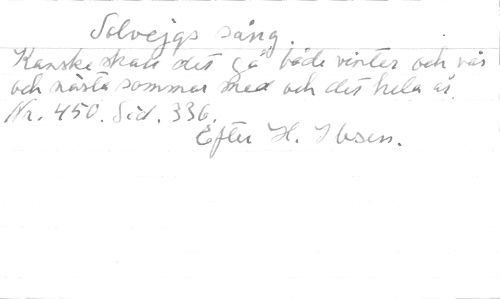 Solvejgs sång.
Kanske skall det gå både vinter och vår
och nästa sommar med och det hela år.
Nr. 450. Sid. 336.
Efter H. Ibsen.